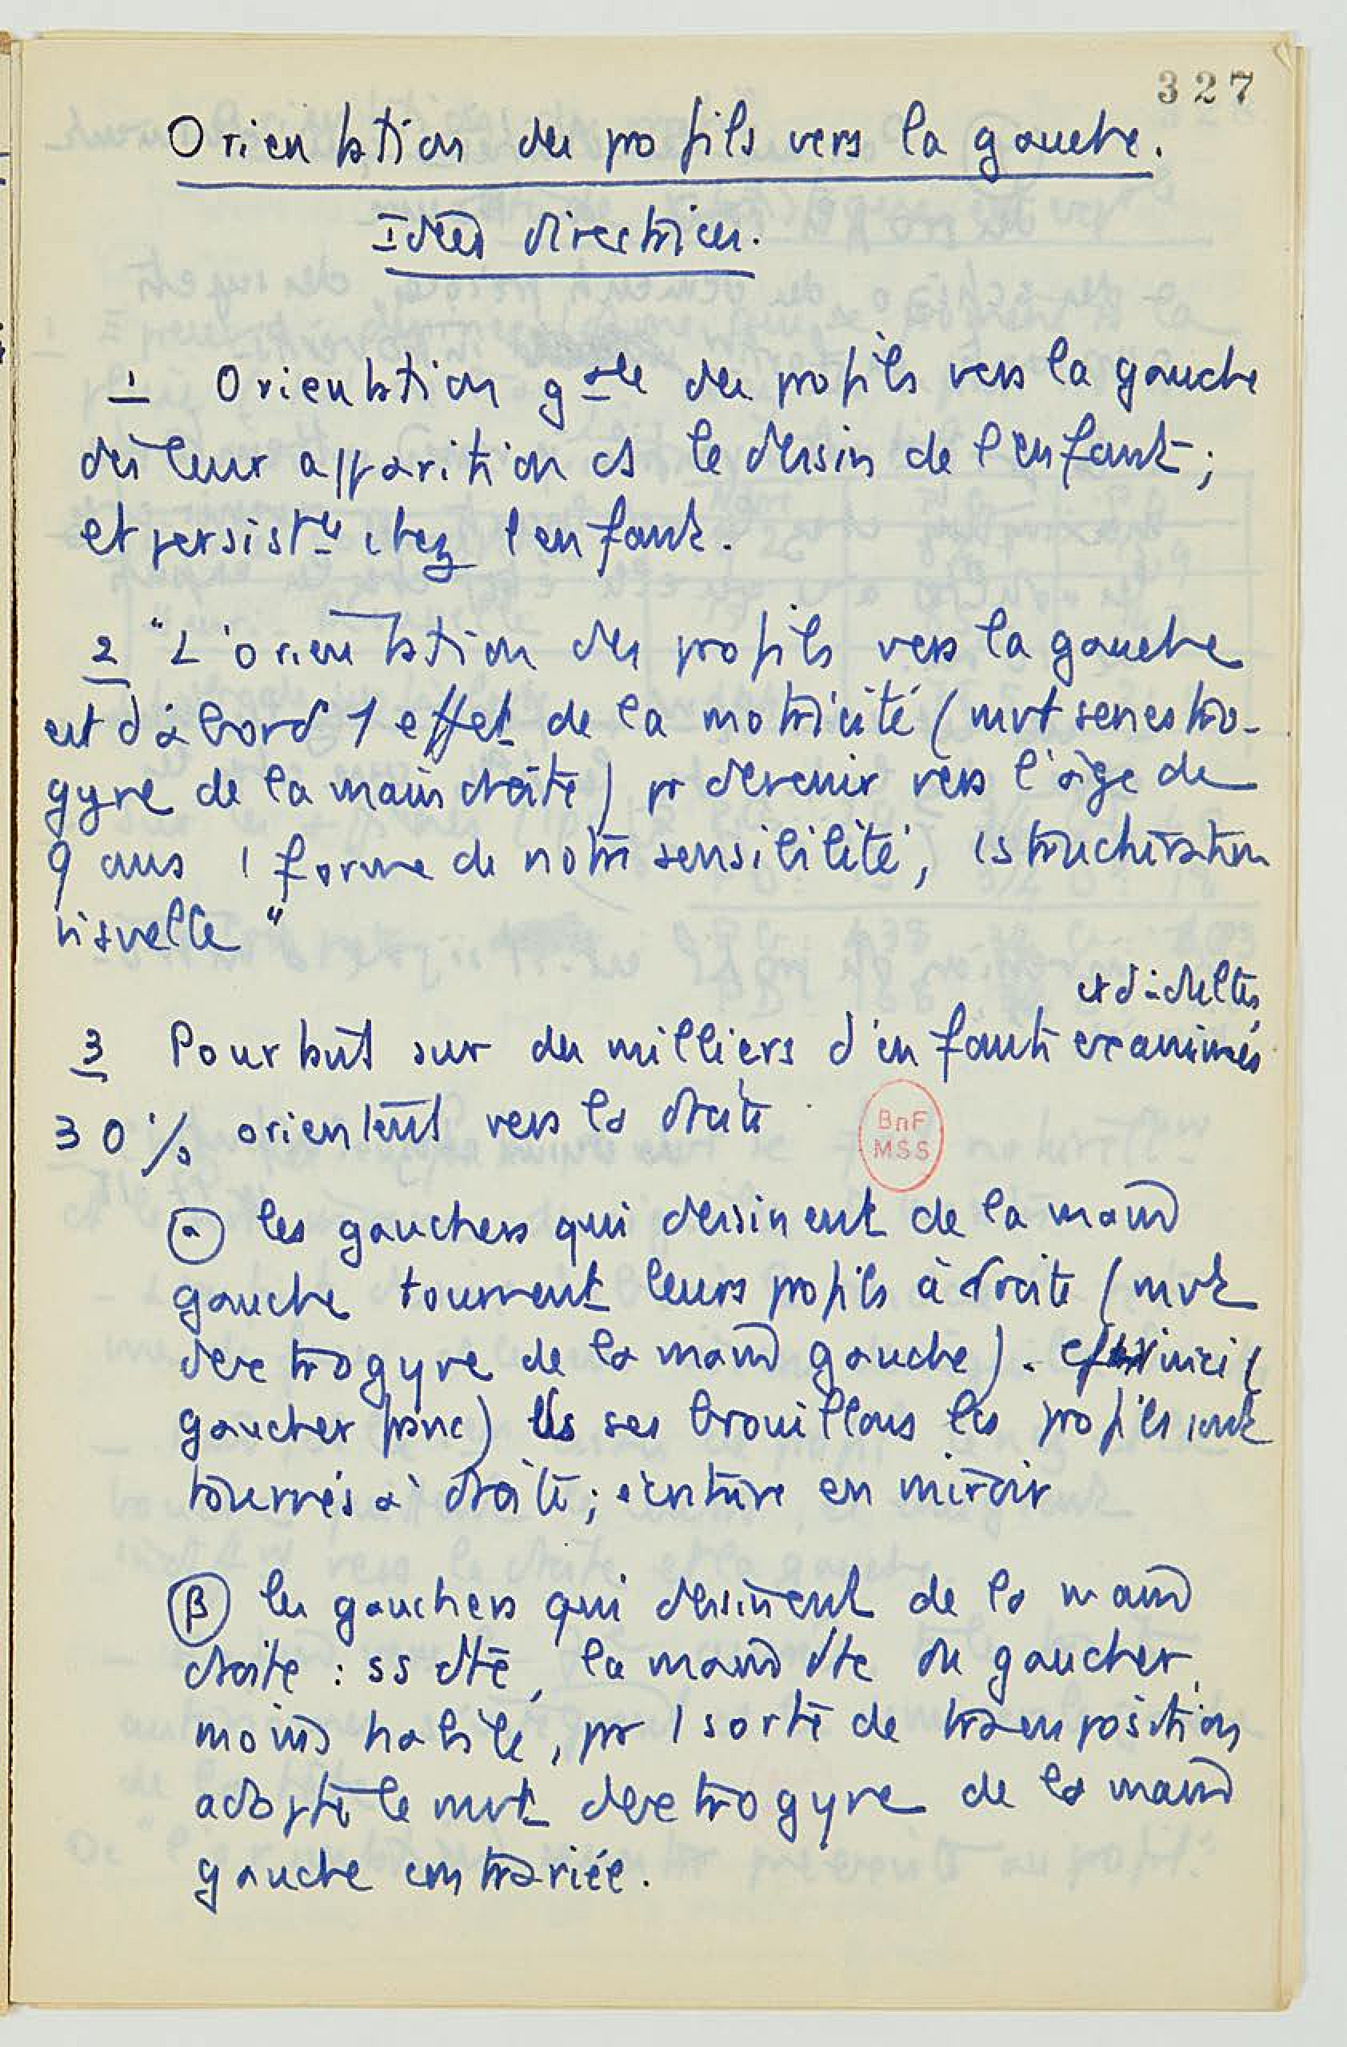 327
Orientation des profils vers la gauche.
Idées directrices.
1 Orientation gale des profils vers la gauche
dès leur apparition ds le dessin de l'enfant ;
et persiste chez l'enfant.
2 "L'orientation des profils vers la gauche
est d'abord 1 effet de la motricité (mvt senestro-
gyre de la main droite) pr devenir vers l'âge de
9 ans 1 forme de notre sensibilité, 1 structuration
visuelle"
et d'adultes
3 Pourtant sur des milliers d'enfants examinés
30 % orientent vers la droite
BnF
MSS
α les gauchers qui dessinent de la main
gauche tournent leurs profils à droite (mvt
dextrogyre de la main gauche). cf Vinci (
gaucher franc) ds ses brouillons les profils sont
tournés à droite ; écriture en miroir
β les gauchers qui dessinent de la main
droite : ss dte, la main dte du gaucher,
moins habile, par 1 sorte de transposition
adopte le mvt dextrogyre de la main
gauche contrariée.